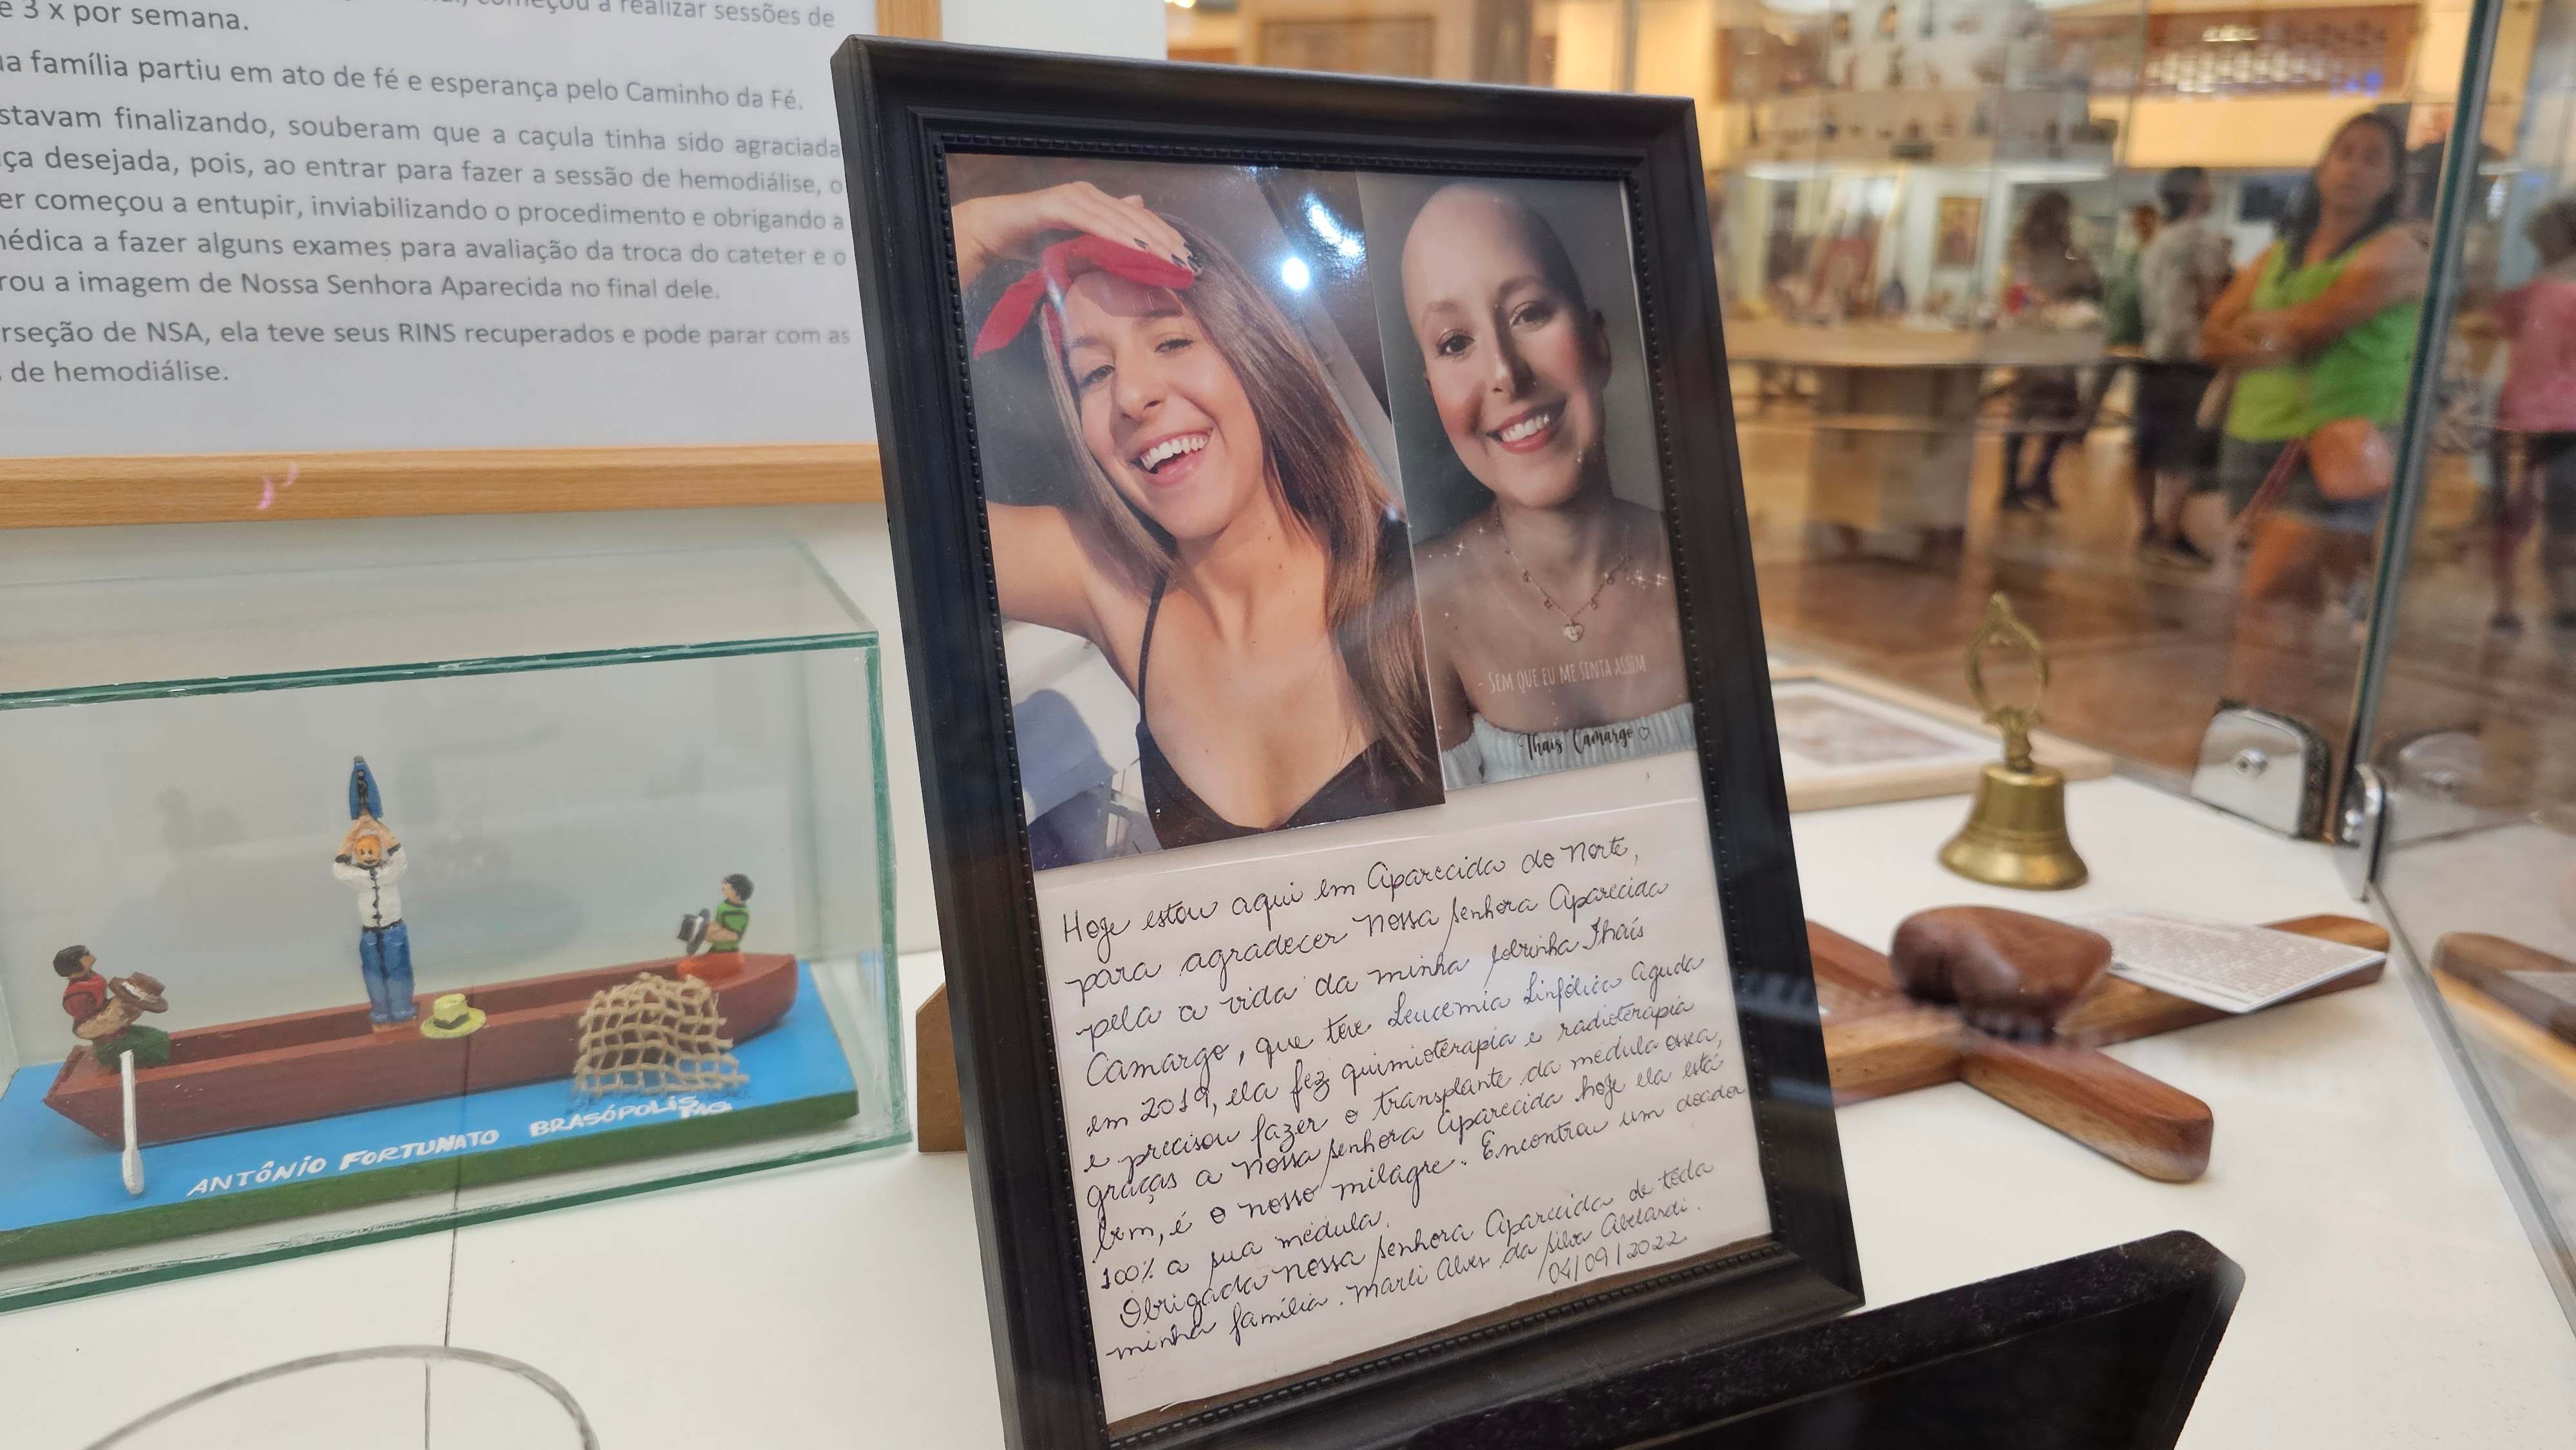 começou a realizar sessões de
e 3 x por semana.
família partiu em ato de fé e esperança pelo Caminho da Fé.
stavam finalizando, souberam que a caçula tinha sido agraciada
ça desejada, pois, ao entrar para fazer a sessão de hemodiálise, o
er começou a entupir, inviabilizando o procedimento e obrigando a
médica a fazer alguns exames para avaliação da troca do cateter e o
rou a imagem de Nossa Senhora Aparecida no final dele.
rseção de NSA, ela teve seus RINS recuperados e pode parar com as
de hemodiálise.
ANTÔNIO FORTUNATO BRASÓPOLIS MG
- SEM QUE EU ME SINTA ASSIM
Thais Camargo
Hoje estou aqui em Aparecida do Norte,
para agradecer Nossa Senhora Aparecida
pela a vida da minha sobrinha Thaís
Camargo, que teve Leucemia Linfólica Aguda
em 2019, ela fez quimioterapia e radioterapia
e precisou fazer o transplante da medula ossea,
graças a Nossa Senhora Aparecida hoje ela está
bem, é o nosso milagre. Encontrou um doador
100% a sua medula.
Obrigada Nossa Senhora Aparecida de toda
minha família. Marli Alves da Silva Abelardi.
04/09/2022